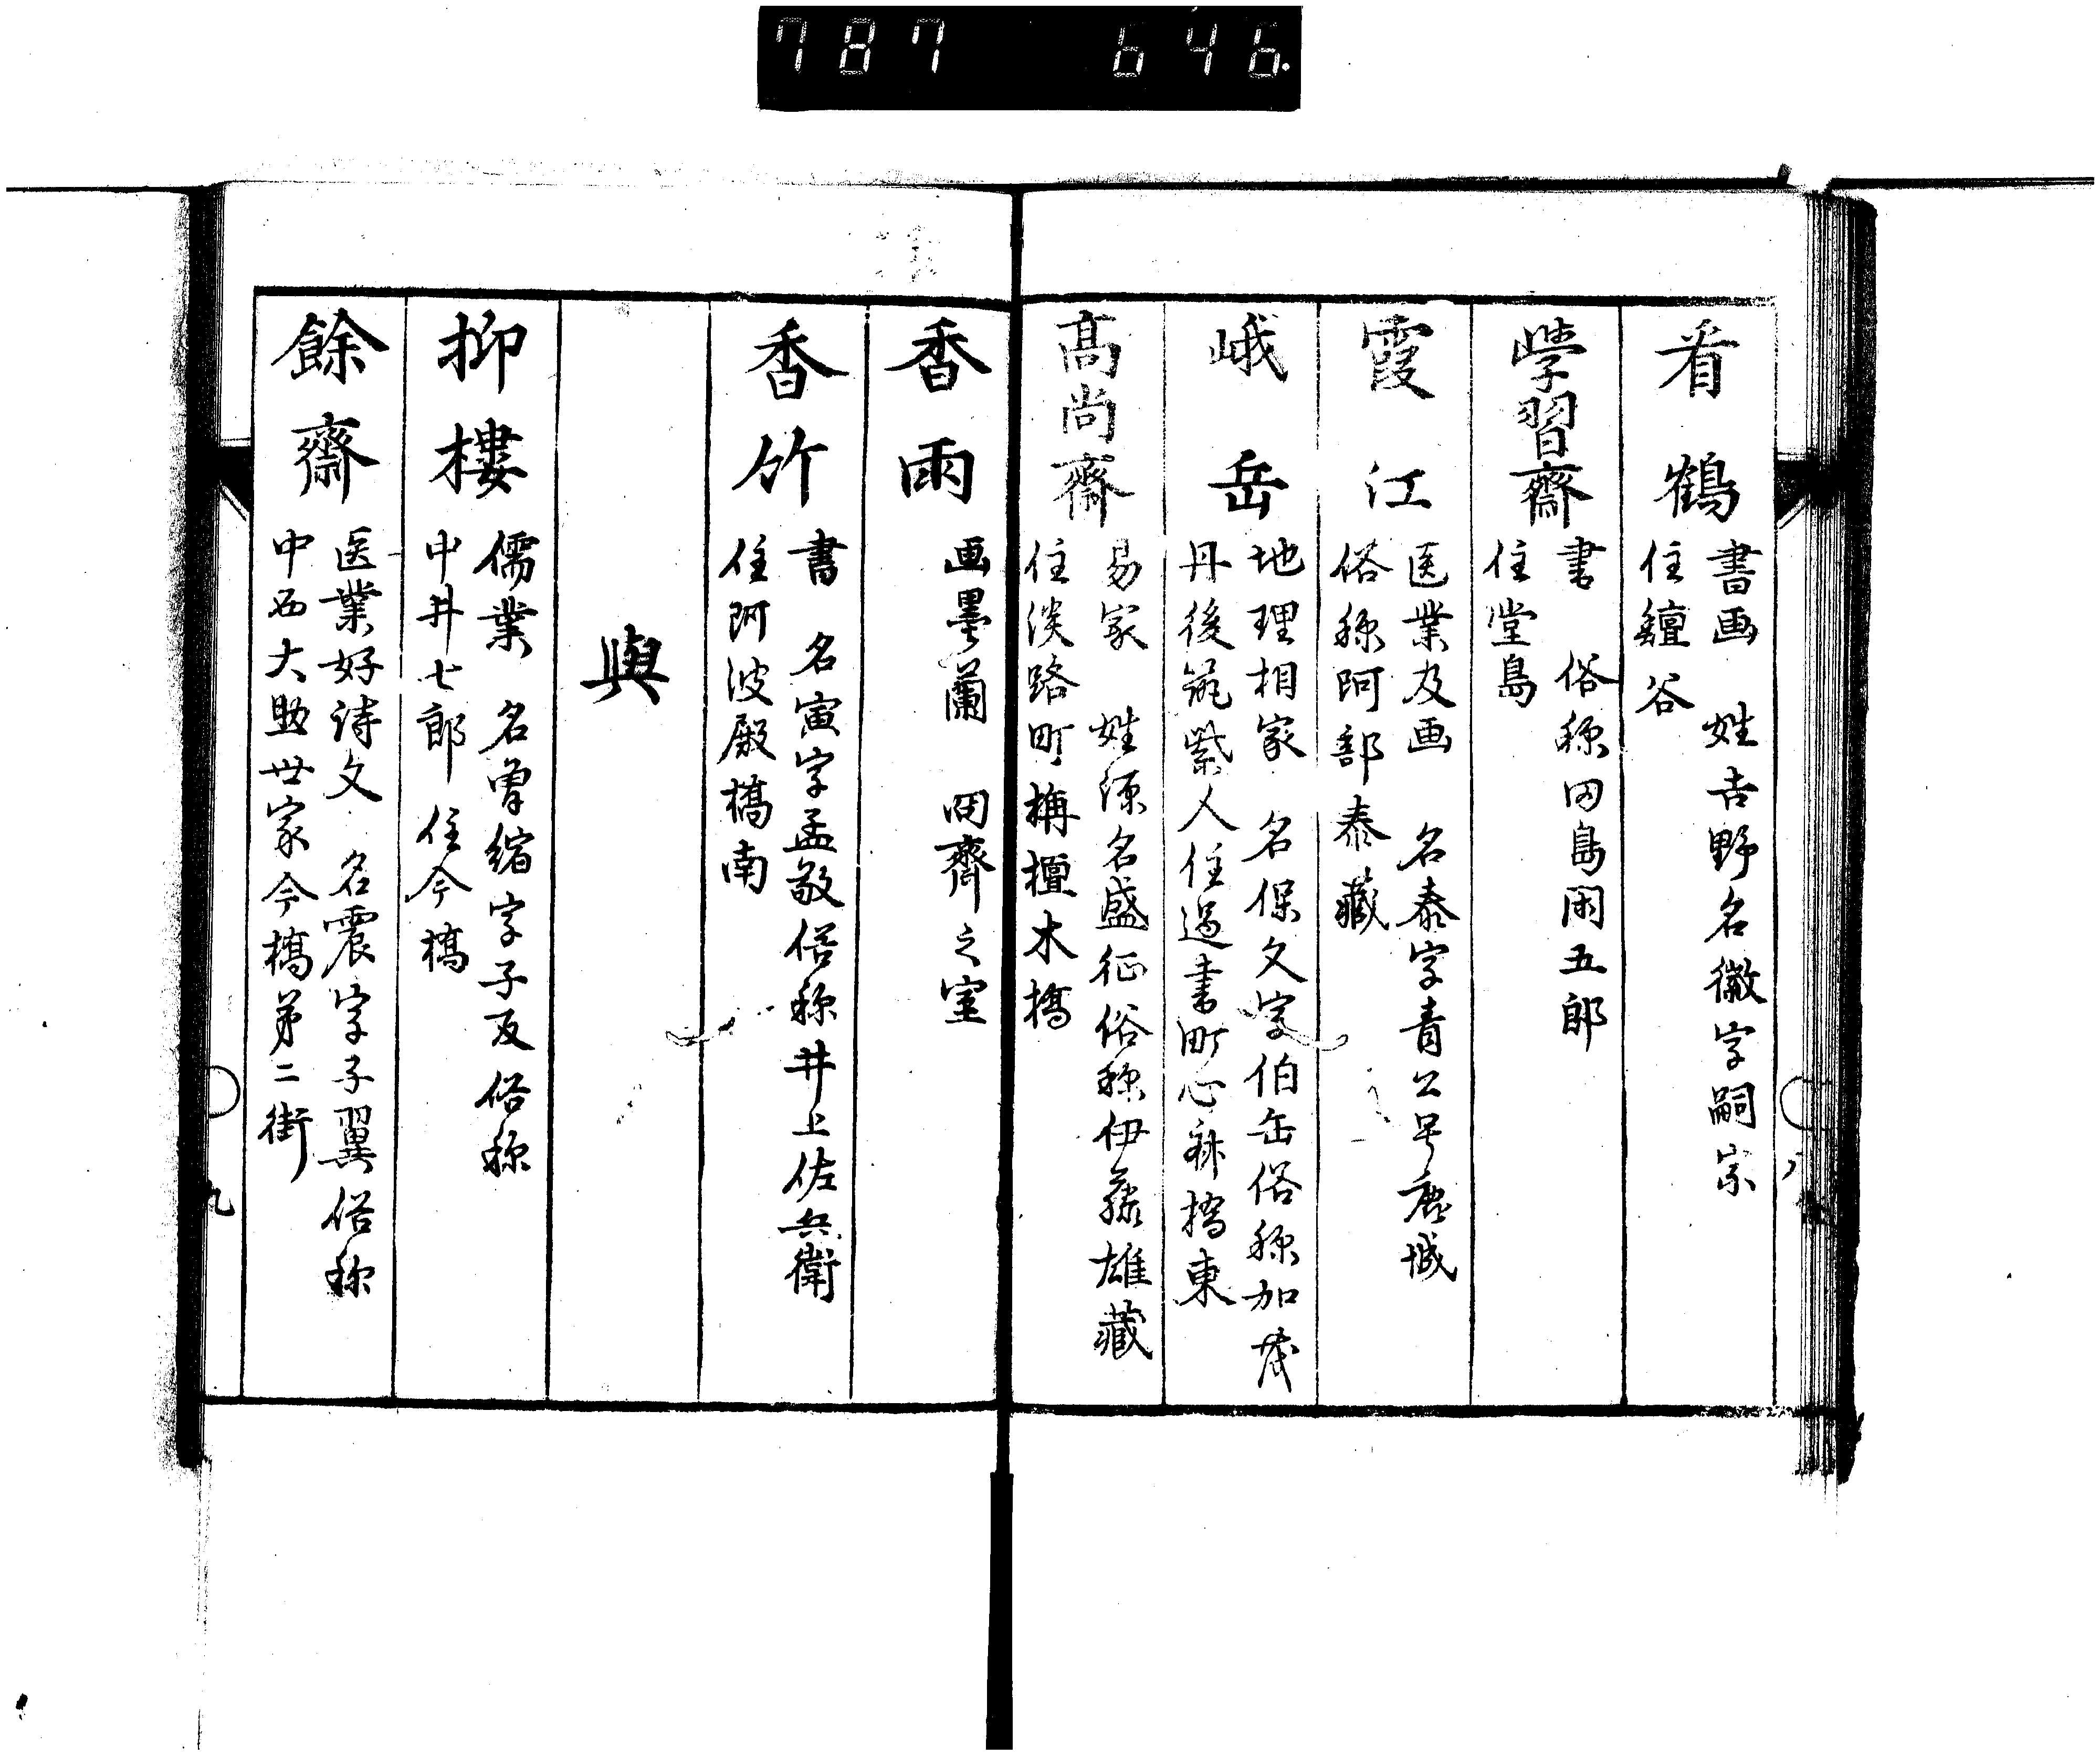 787 646
看鶴
書画 姓吉野名徽字嗣宗
住鰻谷
学習齋
書 俗称田島閑五郎
住堂島
霞江
医業及画 名泰字青公号鹿城
俗称阿部泰藏
峨岳
地理相家 名保文字伯岳俗称加茂
丹後筑紫人住過書町心斎橋東
髙尚齋
易家 姓源名盛征俗称伊藤雄藏
住淡路町梅檀木橋
香雨
画墨蘭 回齋之室
香竹
書 名寅字孟敬俗称井上佐兵衛
住阿波殿橋南
與
抑樓
儒業 名曽縮字子反俗称
中井七郎 住今橋
餘齋
医業好詩文 名震字子翼俗称
中西大助世家今橋第二街
八
九